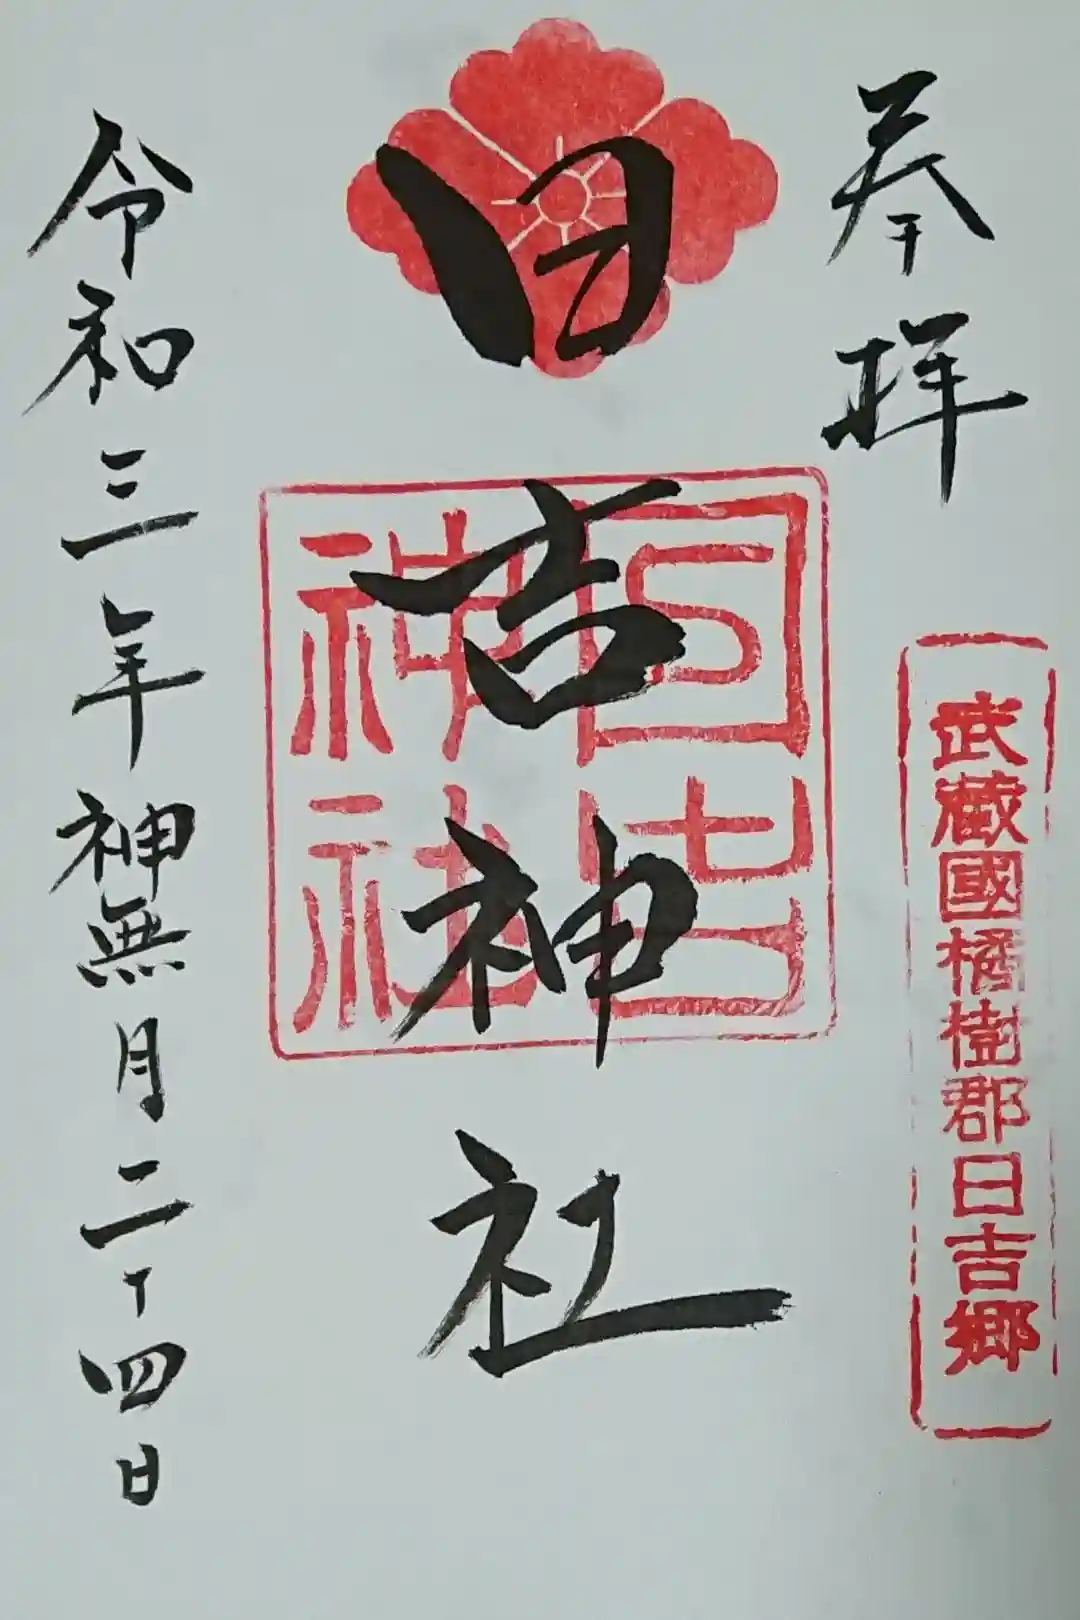 奉拝
武蔵國橘樹郡日吉郷
日吉神社
日吉
神社
令和三年神無月二十四日